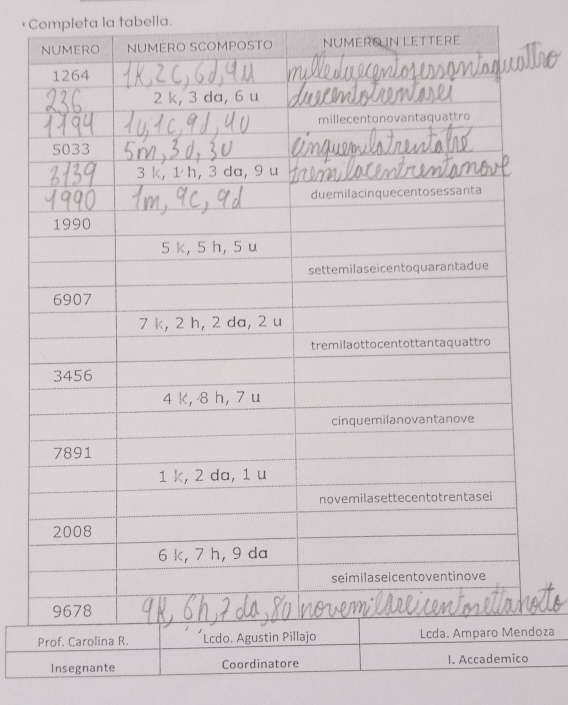 Completa la tabella.
NUMERO NUMERO SCOMPOSTO NUMERO IN LETTERE
1264 1K, 2C, 6d, 4u milleduecentosessantaquattro
236 2 k, 3 da, 6 u duecentotrentasei
1194 1u, 1c, 9d, 4u millecentonovantaquattro
5033 5m, 3d, 3u cinquemilatrentatré
3139 3 k, 1 h, 3 da, 9 u tremilacentrentanove
1990 1m, 9c, 9d duemilacinquecentosessanta
1990
5 k, 5 h, 5 u
settemilaseicentoquarantadue
6907
7 k, 2 h, 2 da, 2 u
tremilaottocentottantaquattro
3456
4 k, 8 h, 7 u
cinquemilanovantanove
7891
1 k, 2 da, 1 u
novemilasettecentotrentasei
2008
6 k, 7 h, 9 da
seimilaseicentoventinove
9678 9k, 6h, 7 da, 8u novemilaseicentosettanotto
Prof. Carolina R. Lcdo. Agustin Pillajo Lcda. Amparo Mendoza
Insegnante Coordinatore I. Accademico